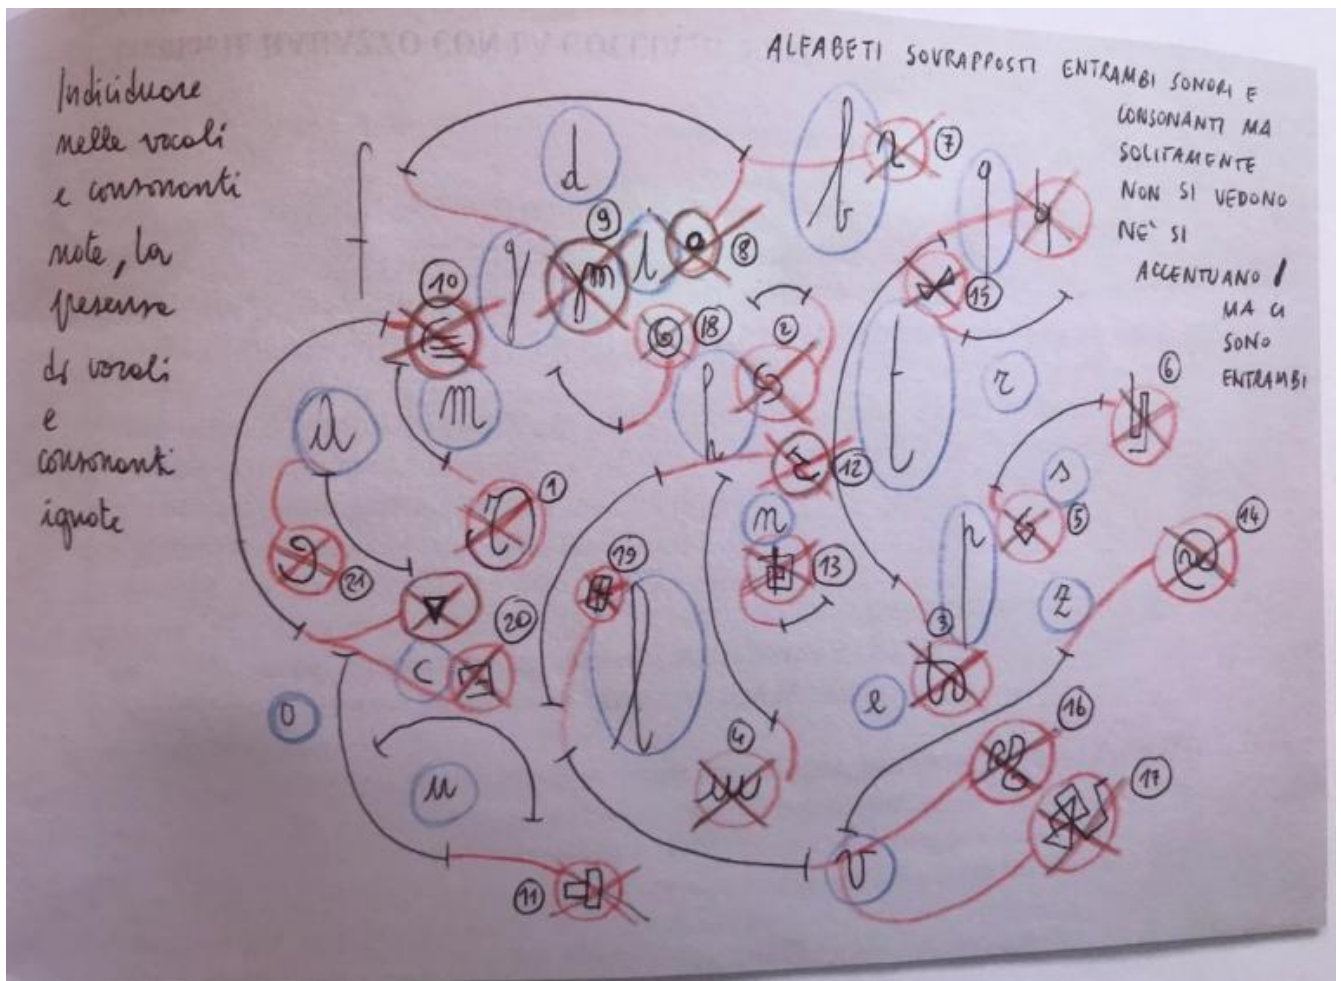 Indiciduare
nelle vocali
e consonanti
note, la
presenza
di vocali
e
consonanti
ignote
ALFABETI SOVRAPPOSTI ENTRAMBI SONORI E
CONSONANTI MA
SOLITAMENTE
NON SI VEDONO
NE' SI
ACCENTUANO
MA CI
SONO
ENTRAMBI
f
d
b
7
q
9
8
10
l
15
m
18
2
h
t
r
6
1
12
n
s
5
14
21
19
13
p
z
20
c
3
o
e
4
16
u
17
v
11